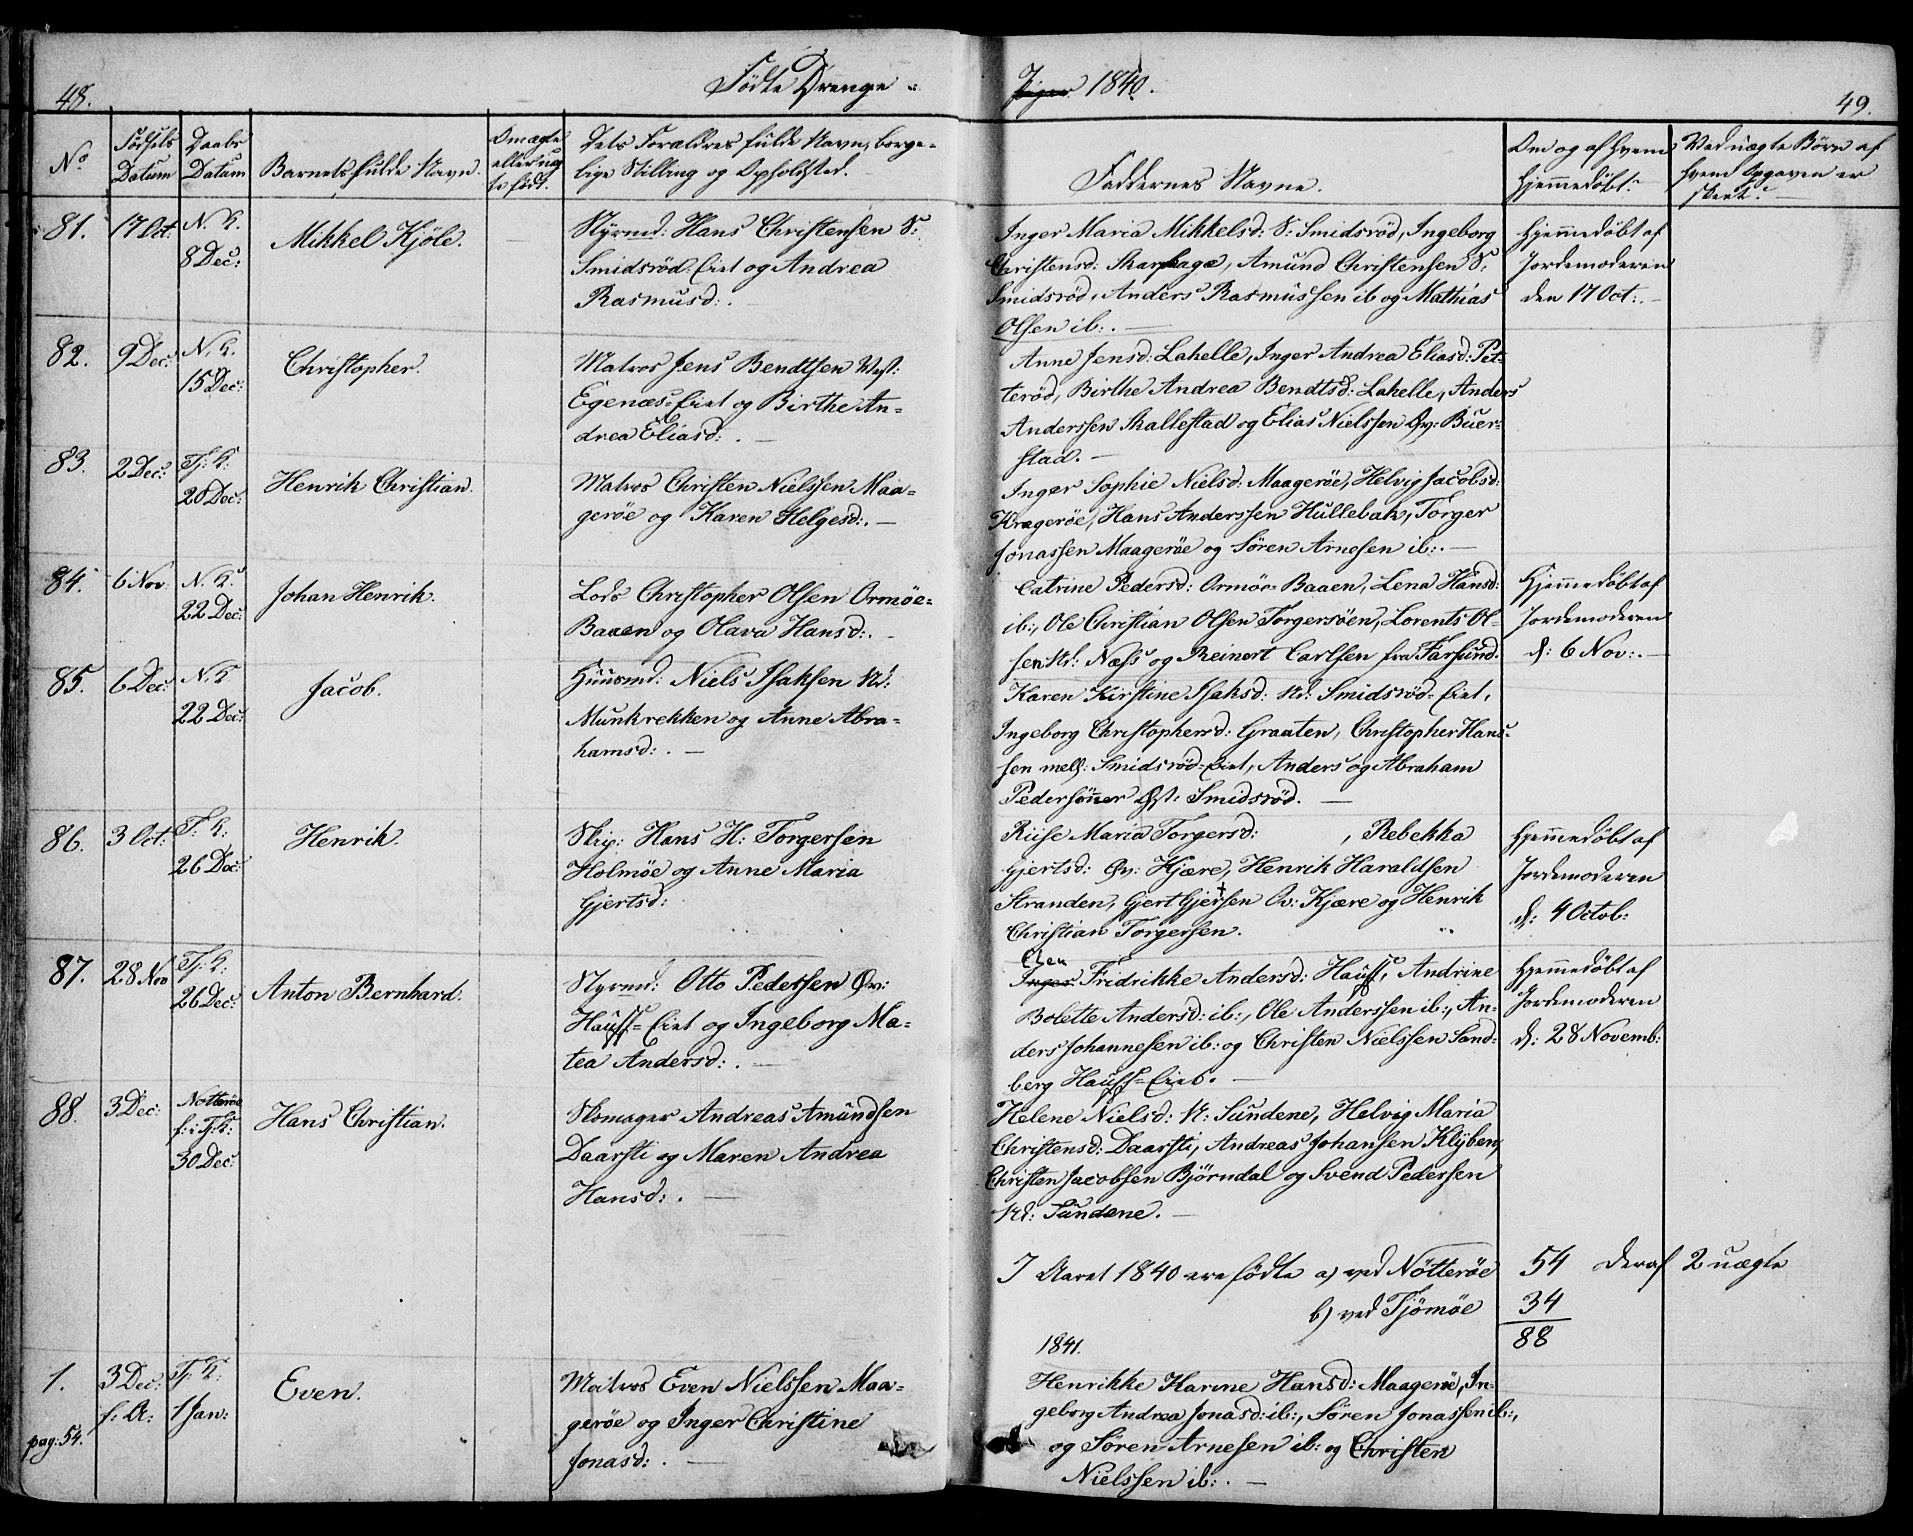 48.
Födte Drenge
1840.
49.
No
Födsels Datum
Daabs Datum
Barnets fulde Navn.
Om ægte eller uægte født.
Dets Forældres fulde Navn, borge-
lige Stilling og Opholdsted.
Faddernes Navne.
Om og af Hvem Hjemmedøbt.
Ved uægte Börn af hvem Opgaven er skeet.
81.
17 Oct:
N. K.
8 Dec:
Mikkel Kjöle.
Styrmd: Hans Christensen S:
Smidsröd-Eiet og Andrea
Rasmusd:.
Inger Maria Mikkelsd: S: Smidsröd, Ingeborg
Christensd: Skarphage, Amund Christensen S:
Smidsröd, Anders Rasmussen ib og Mathias
Olsen ib:.
Hjemmedøbt af
Jordemoderen
den 17 Oct:.
82.
9 Dec:
N. K.
15 Dec:
Christopher.
Matros Jens Bendtsen Vest:
Egenæs-Eiet og Birthe An-
drea Eliasd:.
Anne Jensd: Lahelle, Inger Andrea Eliasd: Pet-
teröd, Birthe Andrea Bendtsd: Lahelle, Anders
Anderssen Skallestad og Elias Nielssen Øv: Buer-
stad.
83.
2 Dec:
Tj: K:
20 Dec:
Henrik Christian.
Matros Christen Nielssen Maa-
geröe og Karen Helgesd:.
Inger Sophie Nielsd: Maageröe, Helvig Jacobsd:
Krageröe, Hans Anderssen Hullebak, Torger
Jonassen Maageröe og Sören Arnesen ib:.
84.
6 Nov.
N. K.
22 Dec:
Johan Henrik.
Lods Christopher Olsen Ormöe-
Baaen og Olava Hansd:.
Catrine Pedersd: Ormöe-Baaen, Lena Hansd:
ib:, Ole Christian Olsen Torgersöen, Lorents Ol-
sen Nd: Næss og Reinert Carlsen fra Farsund.
Hjemmedøbt af
Jordemoderen
d: 6 Nov:.
85.
6 Dec:
N. K
22 Dec:
Jacob.
Huusmd: Niels Isaksen Nd:
Munkrekken og Anne Abra-
hamsd:.
Karen Kirstine Isaksd: Nd: Smidsröd-Eiet,
Ingeborg Christophersd: Graaten, Christopher Hans-
sen mell: Smidsröd-Eiet, Anders og Abraham
Pedersönner Øst: Smidsröd.
86.
3 Oct:
T: K:
26 Dec:
Henrik.
Skip: Hans H: Torgersen
Holmöe og Anne Maria
Gjertsd:
Riise Maria Torgersd: , Rebekka
Gjertsd: Øv: Kjære, Henrik Haraldsen
Stranden, Gjert Gjertsen Øv: Kjære og Henrik
Christian Torgersen.
Hjemmedøbt af
Jordemoderen
d: 4 Octob:
87.
28 Nov
Tj: K:
26 Dec:
Anton Bernhard.
Styrmd: Otto Pedersen Øv:
Hauff-Eiet og Ingeborg Ma-
tea Andersd:.
Elen
Inger Fridrikke Andersd: Hauff, Andrine
Bolette Andersd: ib:, Ole Anderssen ib:, An-
ders Johannesen ib: og Christen Nielssen Sand-
berg Hauff-Eiet.
Hjemmedøbt af
Jordemoderen
d: 28 Novemb:
88.
3 Dec:
Nötteröe
f: i Tj: K:
30 Dec:
Hans Christian.
Skomager Andreas Amundsen
Daarsti og Maren Andrea
Hansd:.
Helene Nielsd: N: Sundene, Helvig Maria
Christensd: Daarsti, Andreas Johansen Klyben,
Christen Jacobsen Björndal og Svend Pedersen
Nd: Sundene.
I Aaret 1840 ere födte a) ved Nötteröe 54 deraf 2 uægte
b) ved Tjömöe 34
88
1841.
1.
pag: 54.
3 Dec:
f: A:
Tj: K
1 Jan:
Even.
Matros Even Nielssen Maa-
geröe og Inger Christine
Jonasd:.
Henrikke Karine Hansd: Maageröe, In-
geborg Andrea Jonasd: ib:, Sören Jonassen ib:,
og Sören Arnesen ib: og Christen
Nielssen ib:.